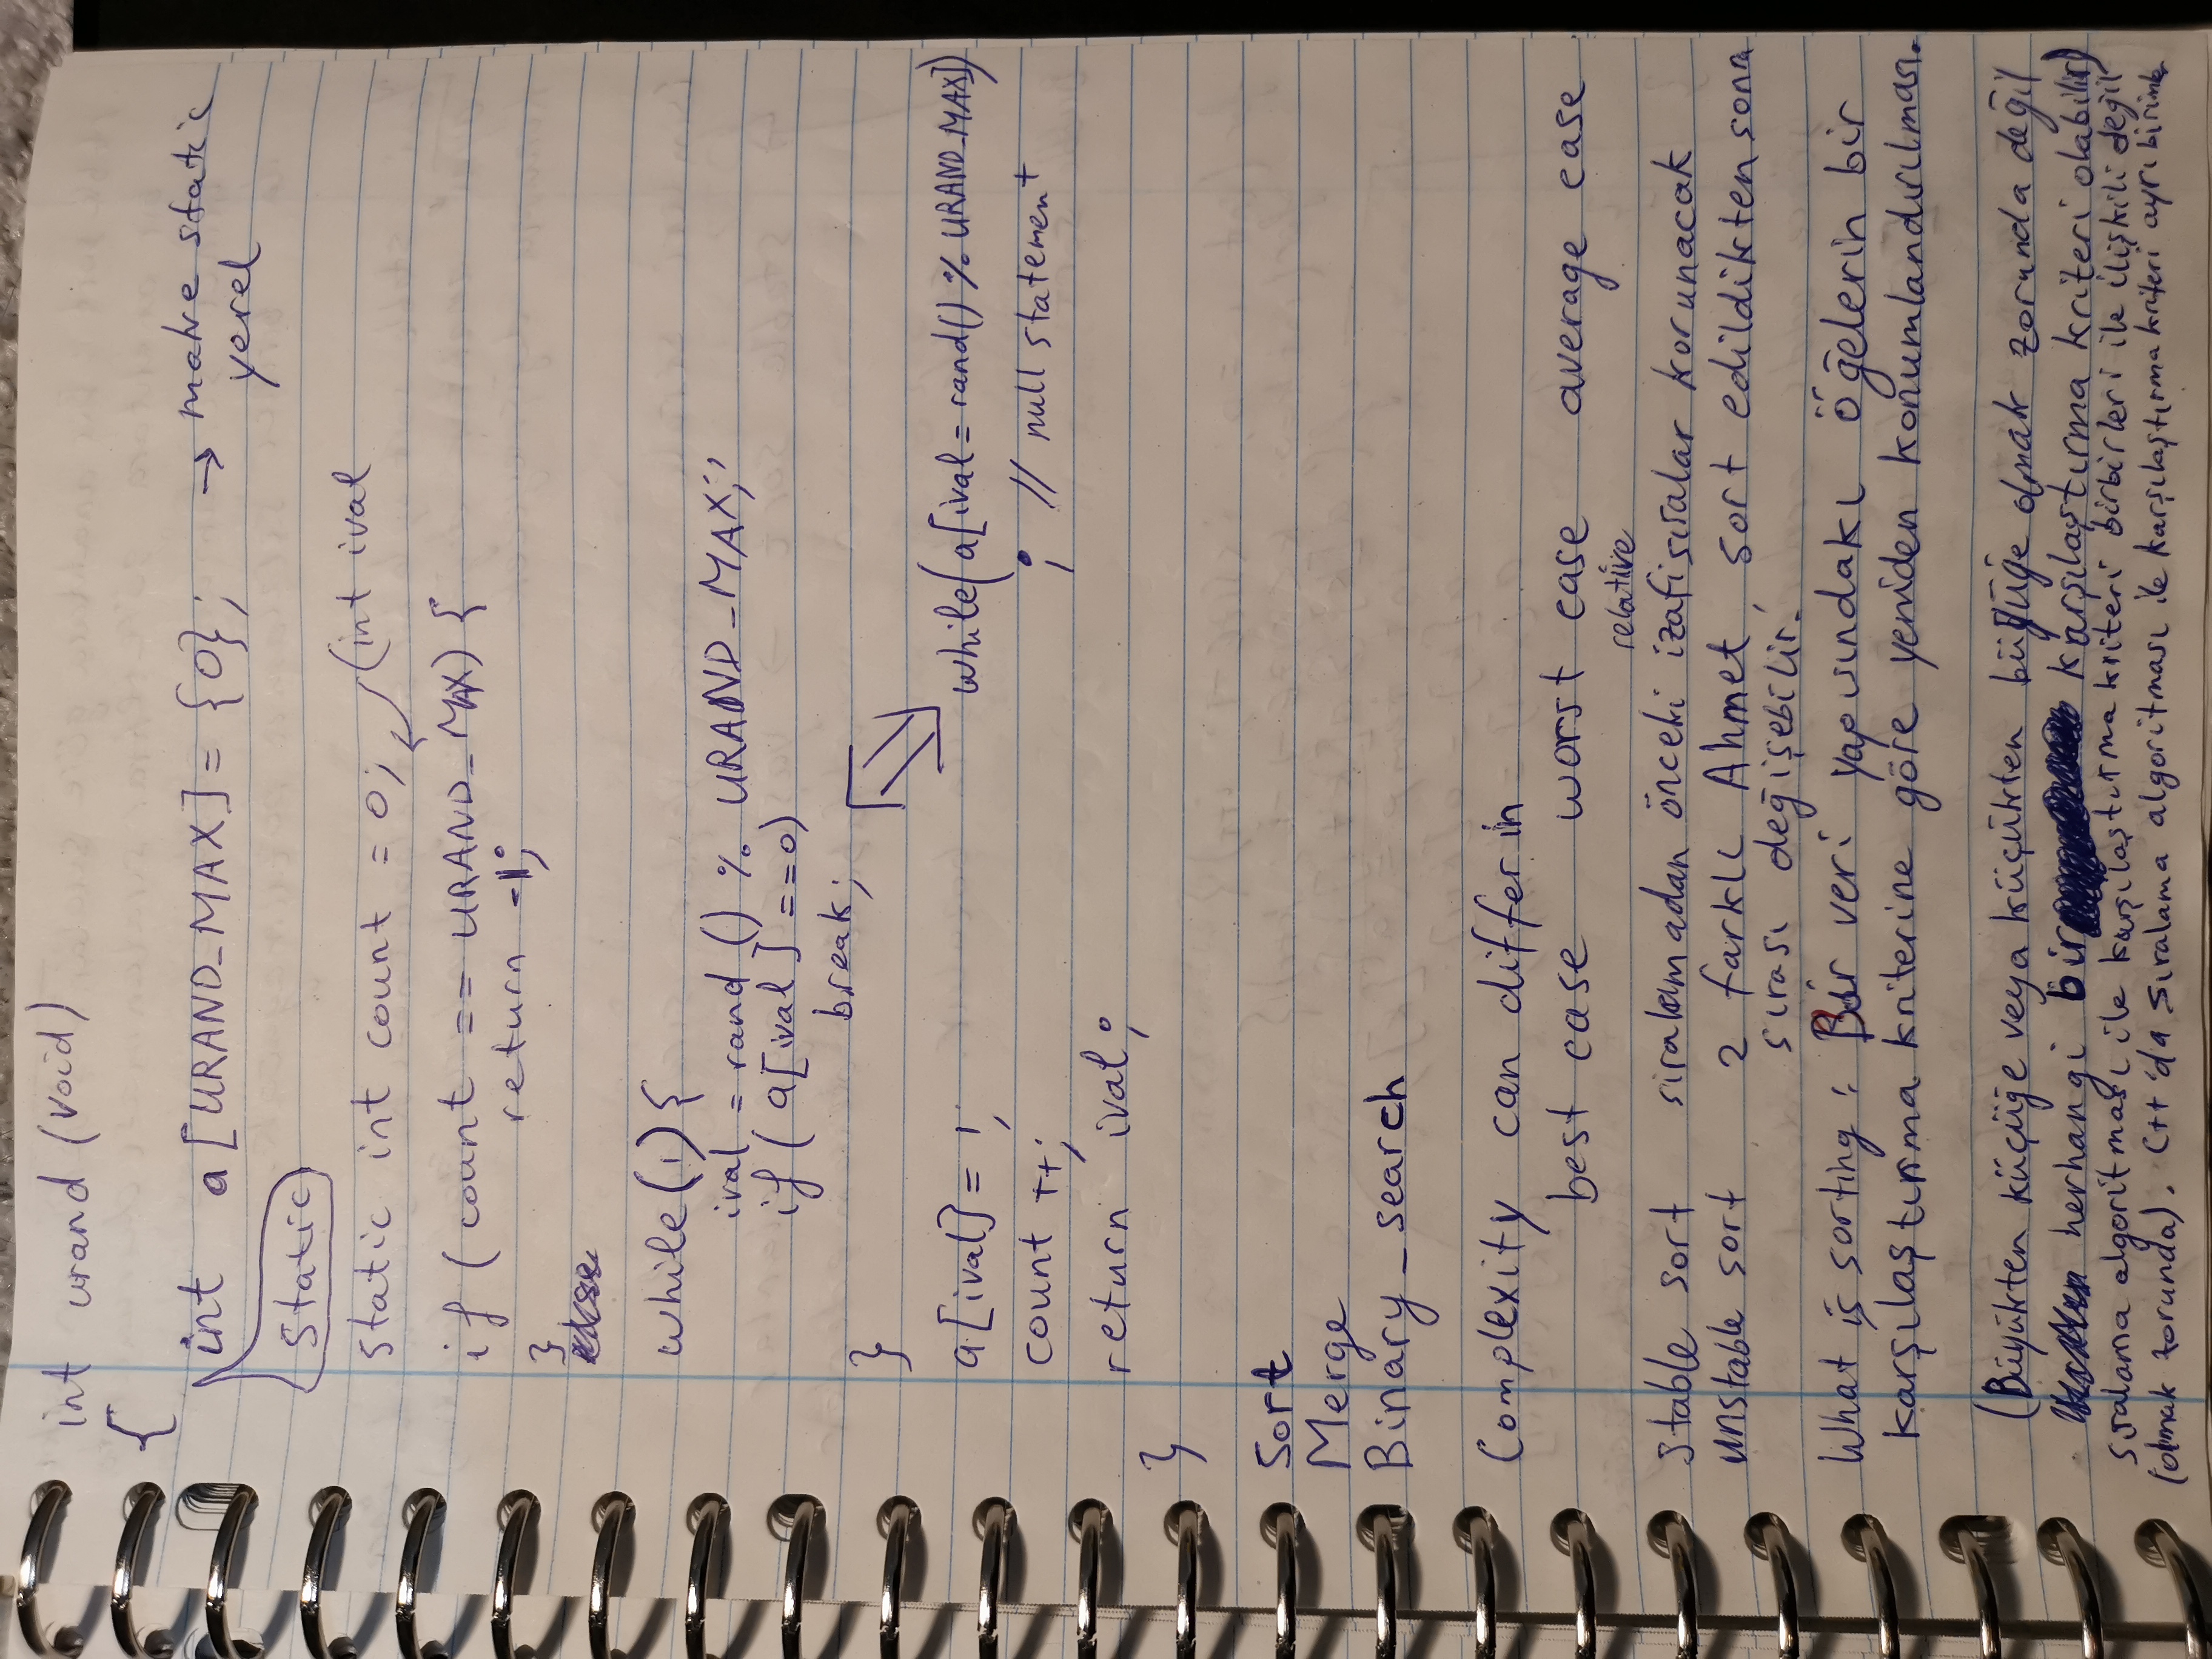 int urand (void)
{
int a[URAND_MAX] = {0}; → make static
yerel
static
static int count = 0; (int ival
if (count == URAND_MAX) {
return -1;
}
while(1){
ival = rand () % URAND_MAX;
if ( a[ival] ==0)
break;
}
a[ival] = 1;
while(a[ival = rand() % URAND_MAX])
count ++;
; // null statement
return ival;
}
Sort
Merge
Binary_search
Complexity can differ in
best case worst case average case
relative
stable sort sıralamadan önceki izafi sıralar korunacak
unstable sort 2 farklı Ahmet, sort edildikten sonra
sırası değişebilir.
What is sorting : Bir veri yapısındaki öğelerin bir
karşılaştırma kriterine göre yeniden konumlandırılması.
(Büyükten küçüğe veya küçükten büyüğe olmak zorunda değil
herhangi bir karşılaştırma kriteri olabilir)
sıralama algoritması ile karşılaştırma kriteri birbirleri ile ilişkili değil
(olmak zorunda). C++'da sıralama algoritması ile karşılaştırma kriteri ayrı birimler